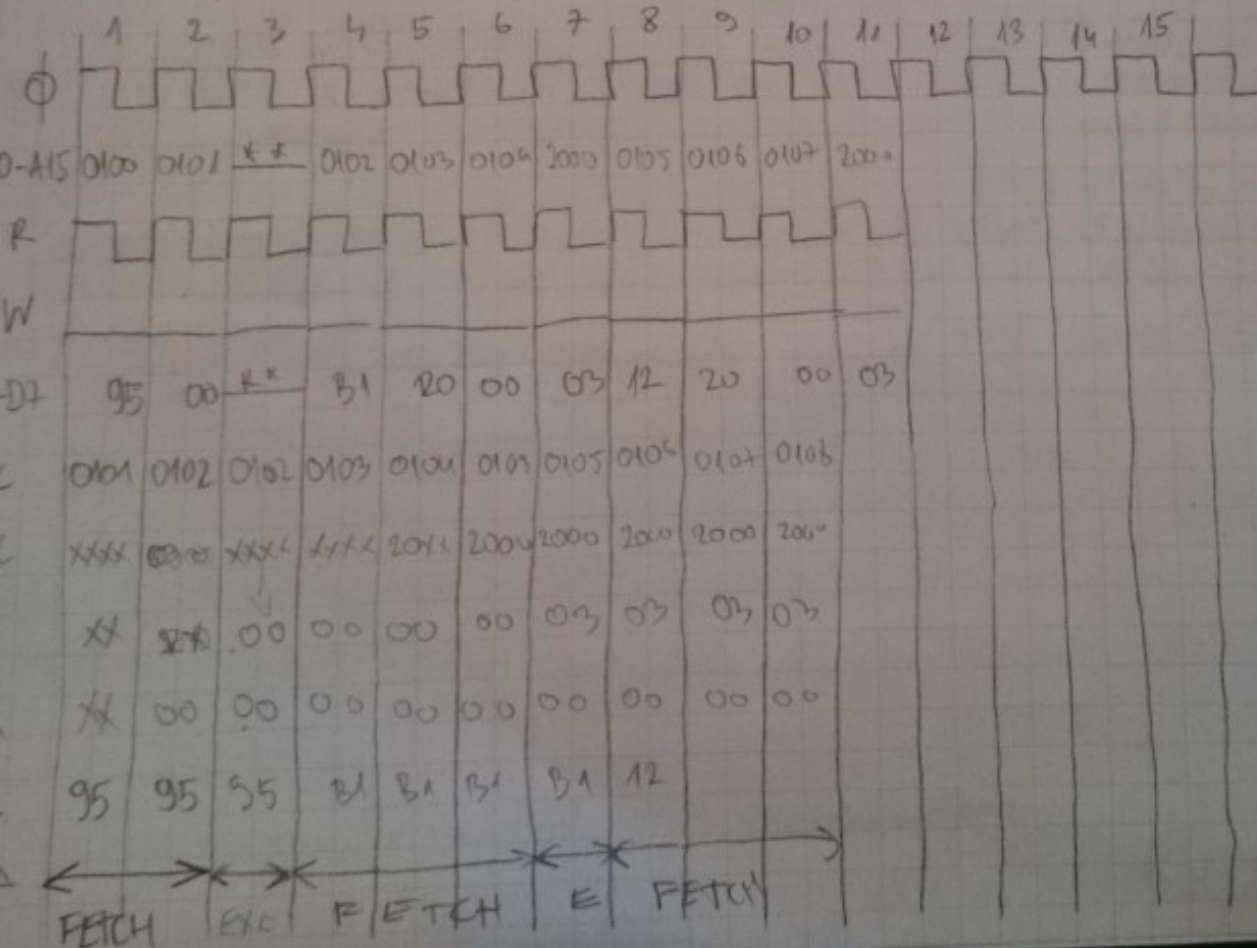 1 2 3 4 5 6 7 8 9 10 11 12 13 14 15
ϕ
0-A15 0100 0101 ** 0102 0103 0104 2000 0105 0106 0107 2000
R
W
-D7 95 00 ** B1 20 00 03 12 20 00 03
0101 0102 0102 0103 0104 0105 0105 0106 0107 0108
XXXX XXXX XXXX 20XX 2000 2000 2000 2000 2000
XX 00 00 00 00 03 03 03 03
XX 00 00 00 00 00 00 00 00 00
95 95 95 B1 B1 B1 B1 12
FETCH EXC FETCH E FETCH